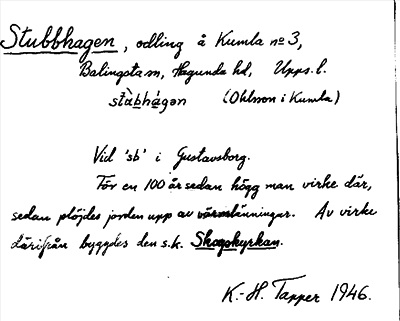 Stubbhagen, odling å Kumla nº 3,
Balingsta sn, Hagunda hd, Upps. l.
stàbhágən (Ohlsson i Kumla)
Vid 'sb' i Gustavsborg.
För en 100 år sedan högg man virke där,
sedan plöjdes jorden upp av Av virke
därifrån byggdes den s.k. Skogskyrkan.
K.-H. Tapper 1946.